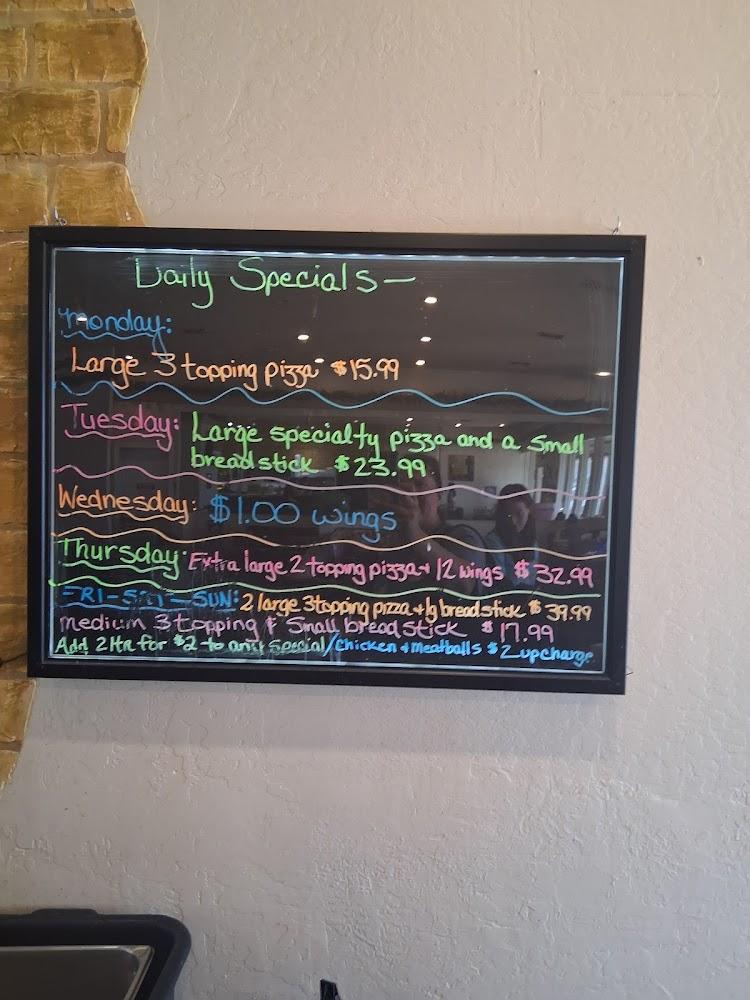 Daily Specials—
Monday:
Large 3 topping pizza $15.99
Tuesday: Large specialty pizza and a small
breadstick $23.99
Wednesday: $1.00 wings
Thursday: Extra large 2 topping pizza + 12 wings $32.99
FRI-SAT-SUN: 2 large 3 topping pizza + lg breadstick $39.99
medium 3 topping & Small breadstick $17.99
Add 2 ltr for $2 to any special/chicken + meatballs $2 upcharge